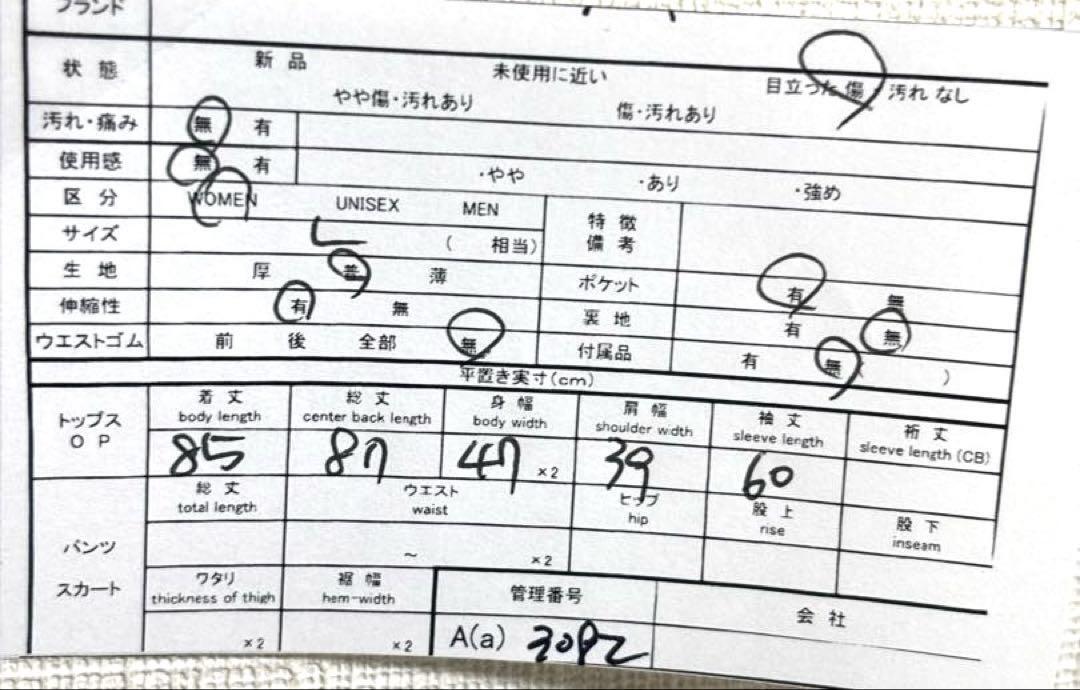 ブランド
状態 新品 未使用に近い 目立つた傷・汚れなし
やや傷・汚れあり 傷・汚れあり
汚れ・痛み 無 有
使用感 無 有 ・やや ・あり ・強め
区分 WOMEN UNISEX MEN 特徴備考
サイズ L ( 相当)
生地 厚 普 薄 ポケット 有 無
伸縮性 有 無 裏地 有 無
ウエストゴム 前 後 全部 無 付属品 有 無 ( )
平置き実寸(cm)
トップス OP 着丈 総丈 身幅 肩幅 袖丈 裄丈
body length center back length body width shoulder width sleeve length sleeve length (CB)
85 87 47 ×2 39 60
パンツ スカート 総丈 ウエスト ヒップ 股上 股下
total length waist hip rise inseam
～ ×2
ワタリ 裾幅 管理番号 会社
thickness of thigh hem-width
×2 ×2 A(a) 3092